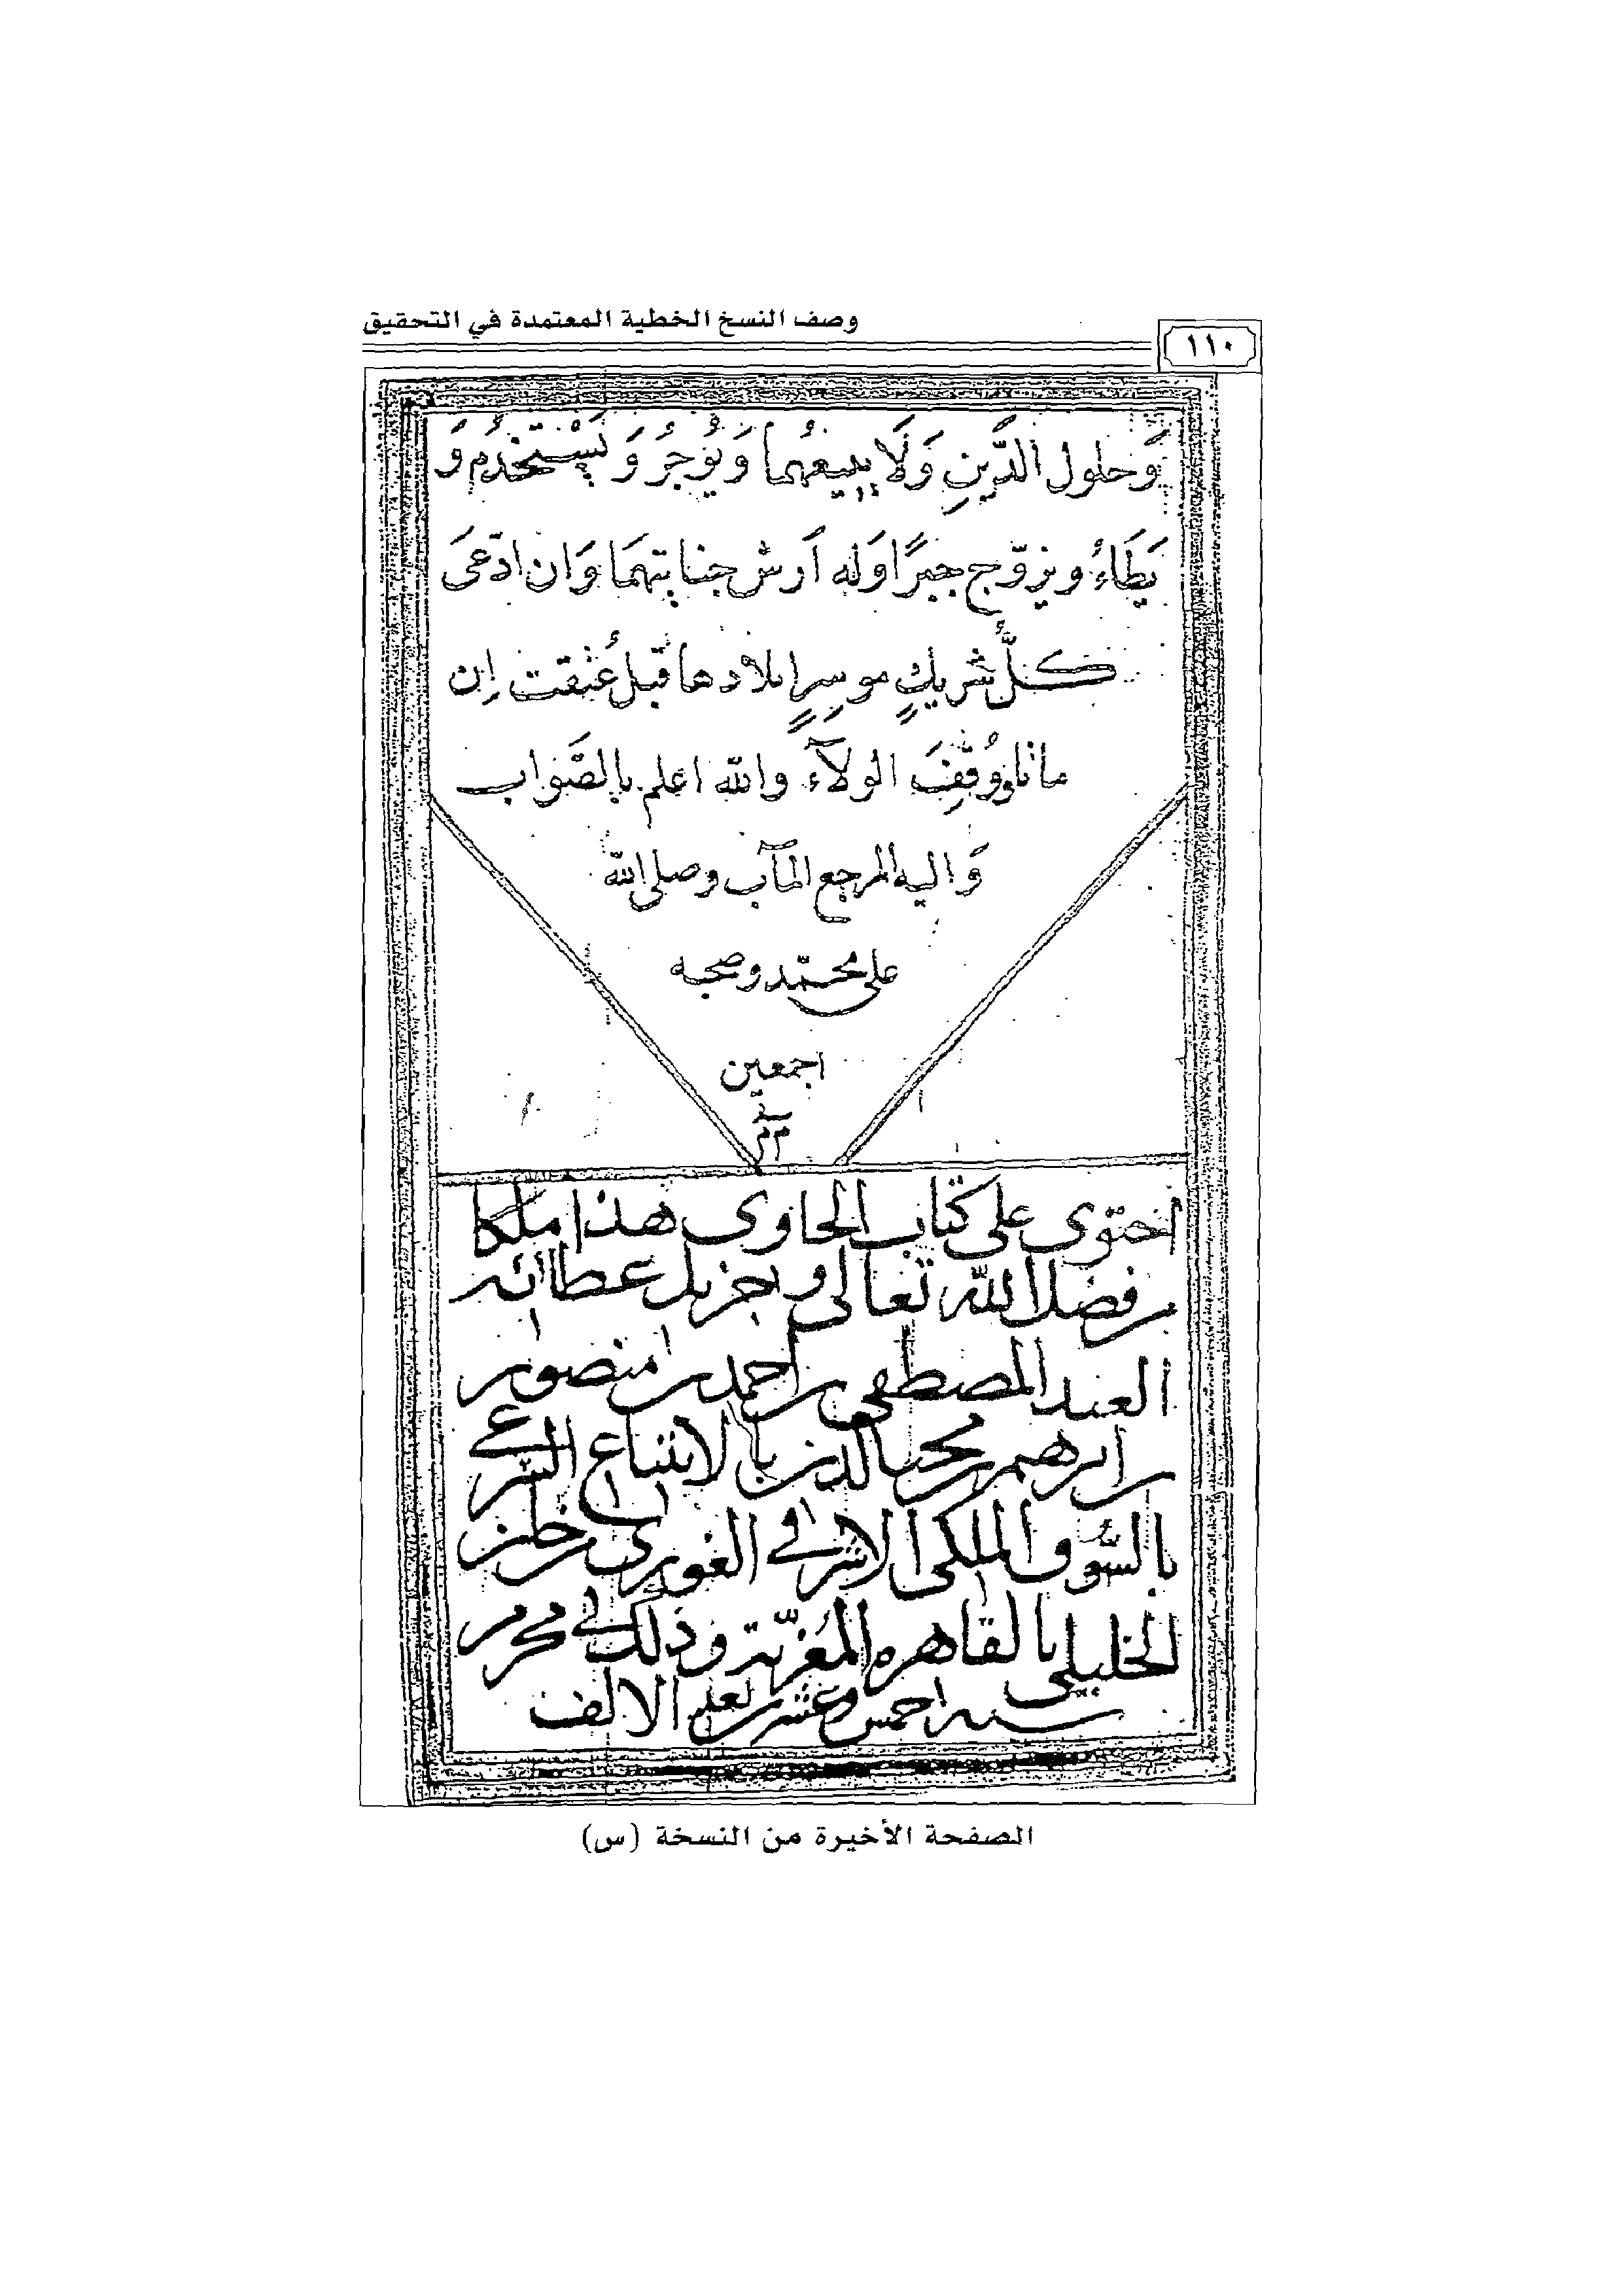 وصف النسخ الخطية المعتمدة في التحقيق
١١٠
وَحلول الدَّينِ وَلَا يبيعُهما وَيُوجُر وَيَسْتَخْدُم وَ
يَطَاءُ ويزوّج جبرًا وَله أرش جنايتهمَا وَان ادّعَى
كلُّ شريكٍ موسِرٍ ايلادها قبل عُتقت إن
ماتا ووُقِفَ الولآء والله اعلم بالصَّواب
وَاليه المرجع المآب وصلى الله
على محمّد وصحبه
اجمعين
احتوى على كتاب الحاوى هذا ملكا
من فضل الله تعالى وجزيل عطائه
العبد المصطفى بن احمد بن منصور
بن ابرهيم بن محب الدين بالابتياع الشرعي
بالسّوق الملكى الاشرفي الغورى من خان
الخليلى بالقاهره المعزيّة وذلك في محرم
سنة خمس وعشرين بعد الالف
الصفحة الأخيرة من النسخة (س)